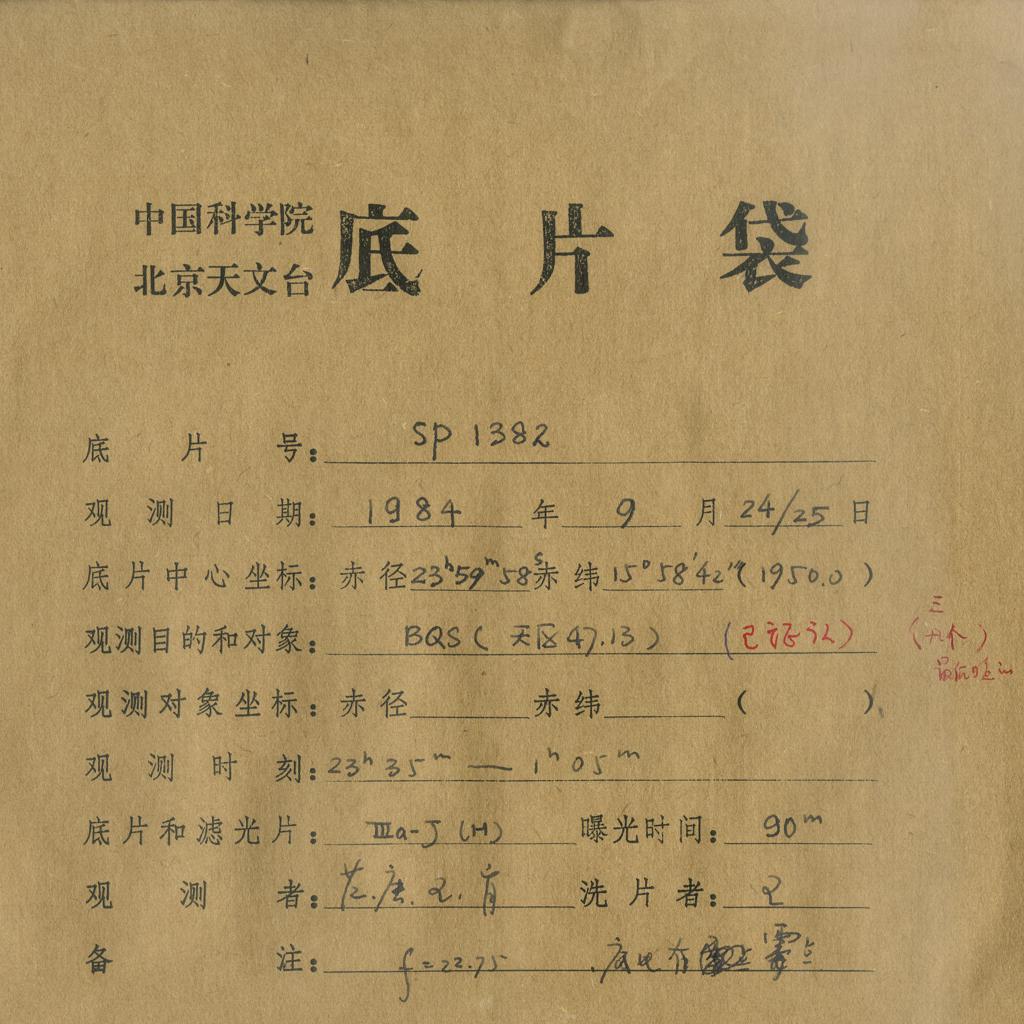 中国科学院
北京天文台 底片袋
底片号： SP 1382
观测日期： 1984 年 9 月 24/25 日
底片中心坐标： 赤径 23ʰ59ᵐ58ˢ 赤纬 15°58′42″ (1950.0)
观测目的和对象： BQS ( 天区 47.13 ) (已证认) (九个)
三
观测对象坐标： 赤径 赤纬 ( )
观测时刻： 23ʰ 35ᵐ — 1ʰ 05ᵐ
底片和滤光片： Ⅲa-J (H) 曝光时间： 90ᵐ
观测者： 唐. 王. 洗片者： 王
备注： f = 22.75 . 底 有 霉点